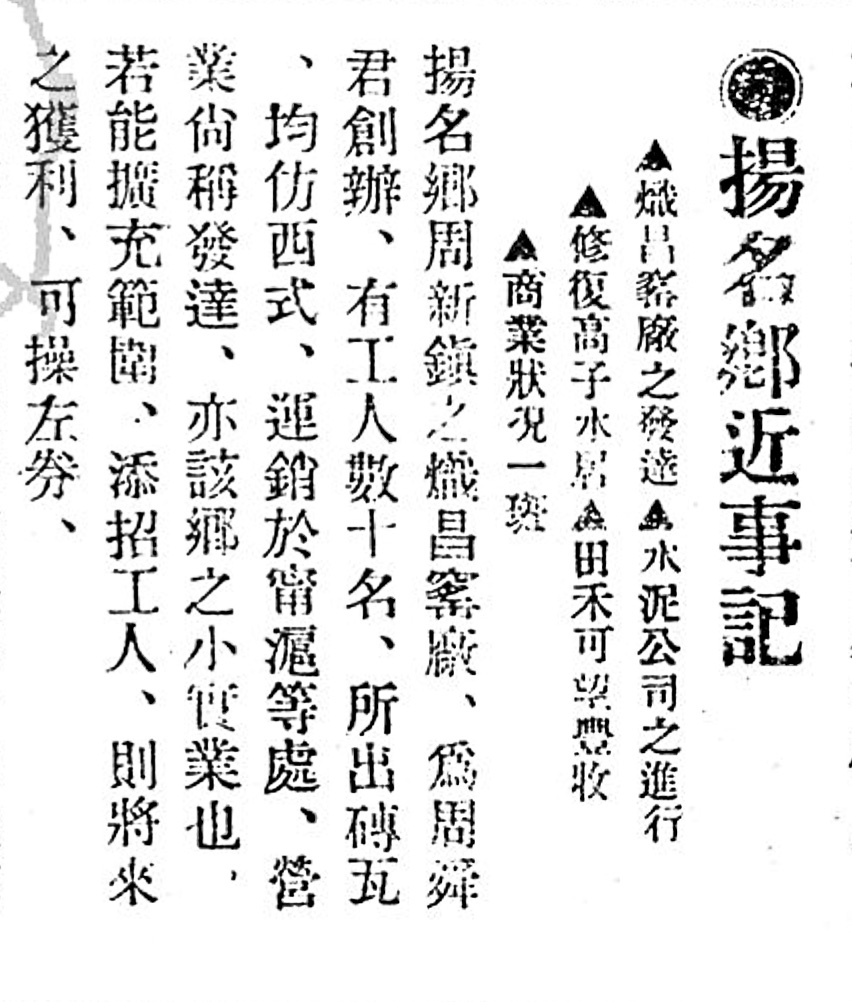 ◉揚名鄉近事記
▲熾昌窰廠之發達▲水泥公司之進行
▲修復高子水居▲田禾可望豐收
▲商業狀況一斑
揚名鄉周新鎮之熾昌窰廠、爲周舜
君創辦、有工人數十名、所出磚瓦
、均仿西式、運銷於甯滬等處、營
業尙稱發達、亦該鄉之小實業也、
若能擴充範圍、添招工人、則將來
之獲利、可操左券、